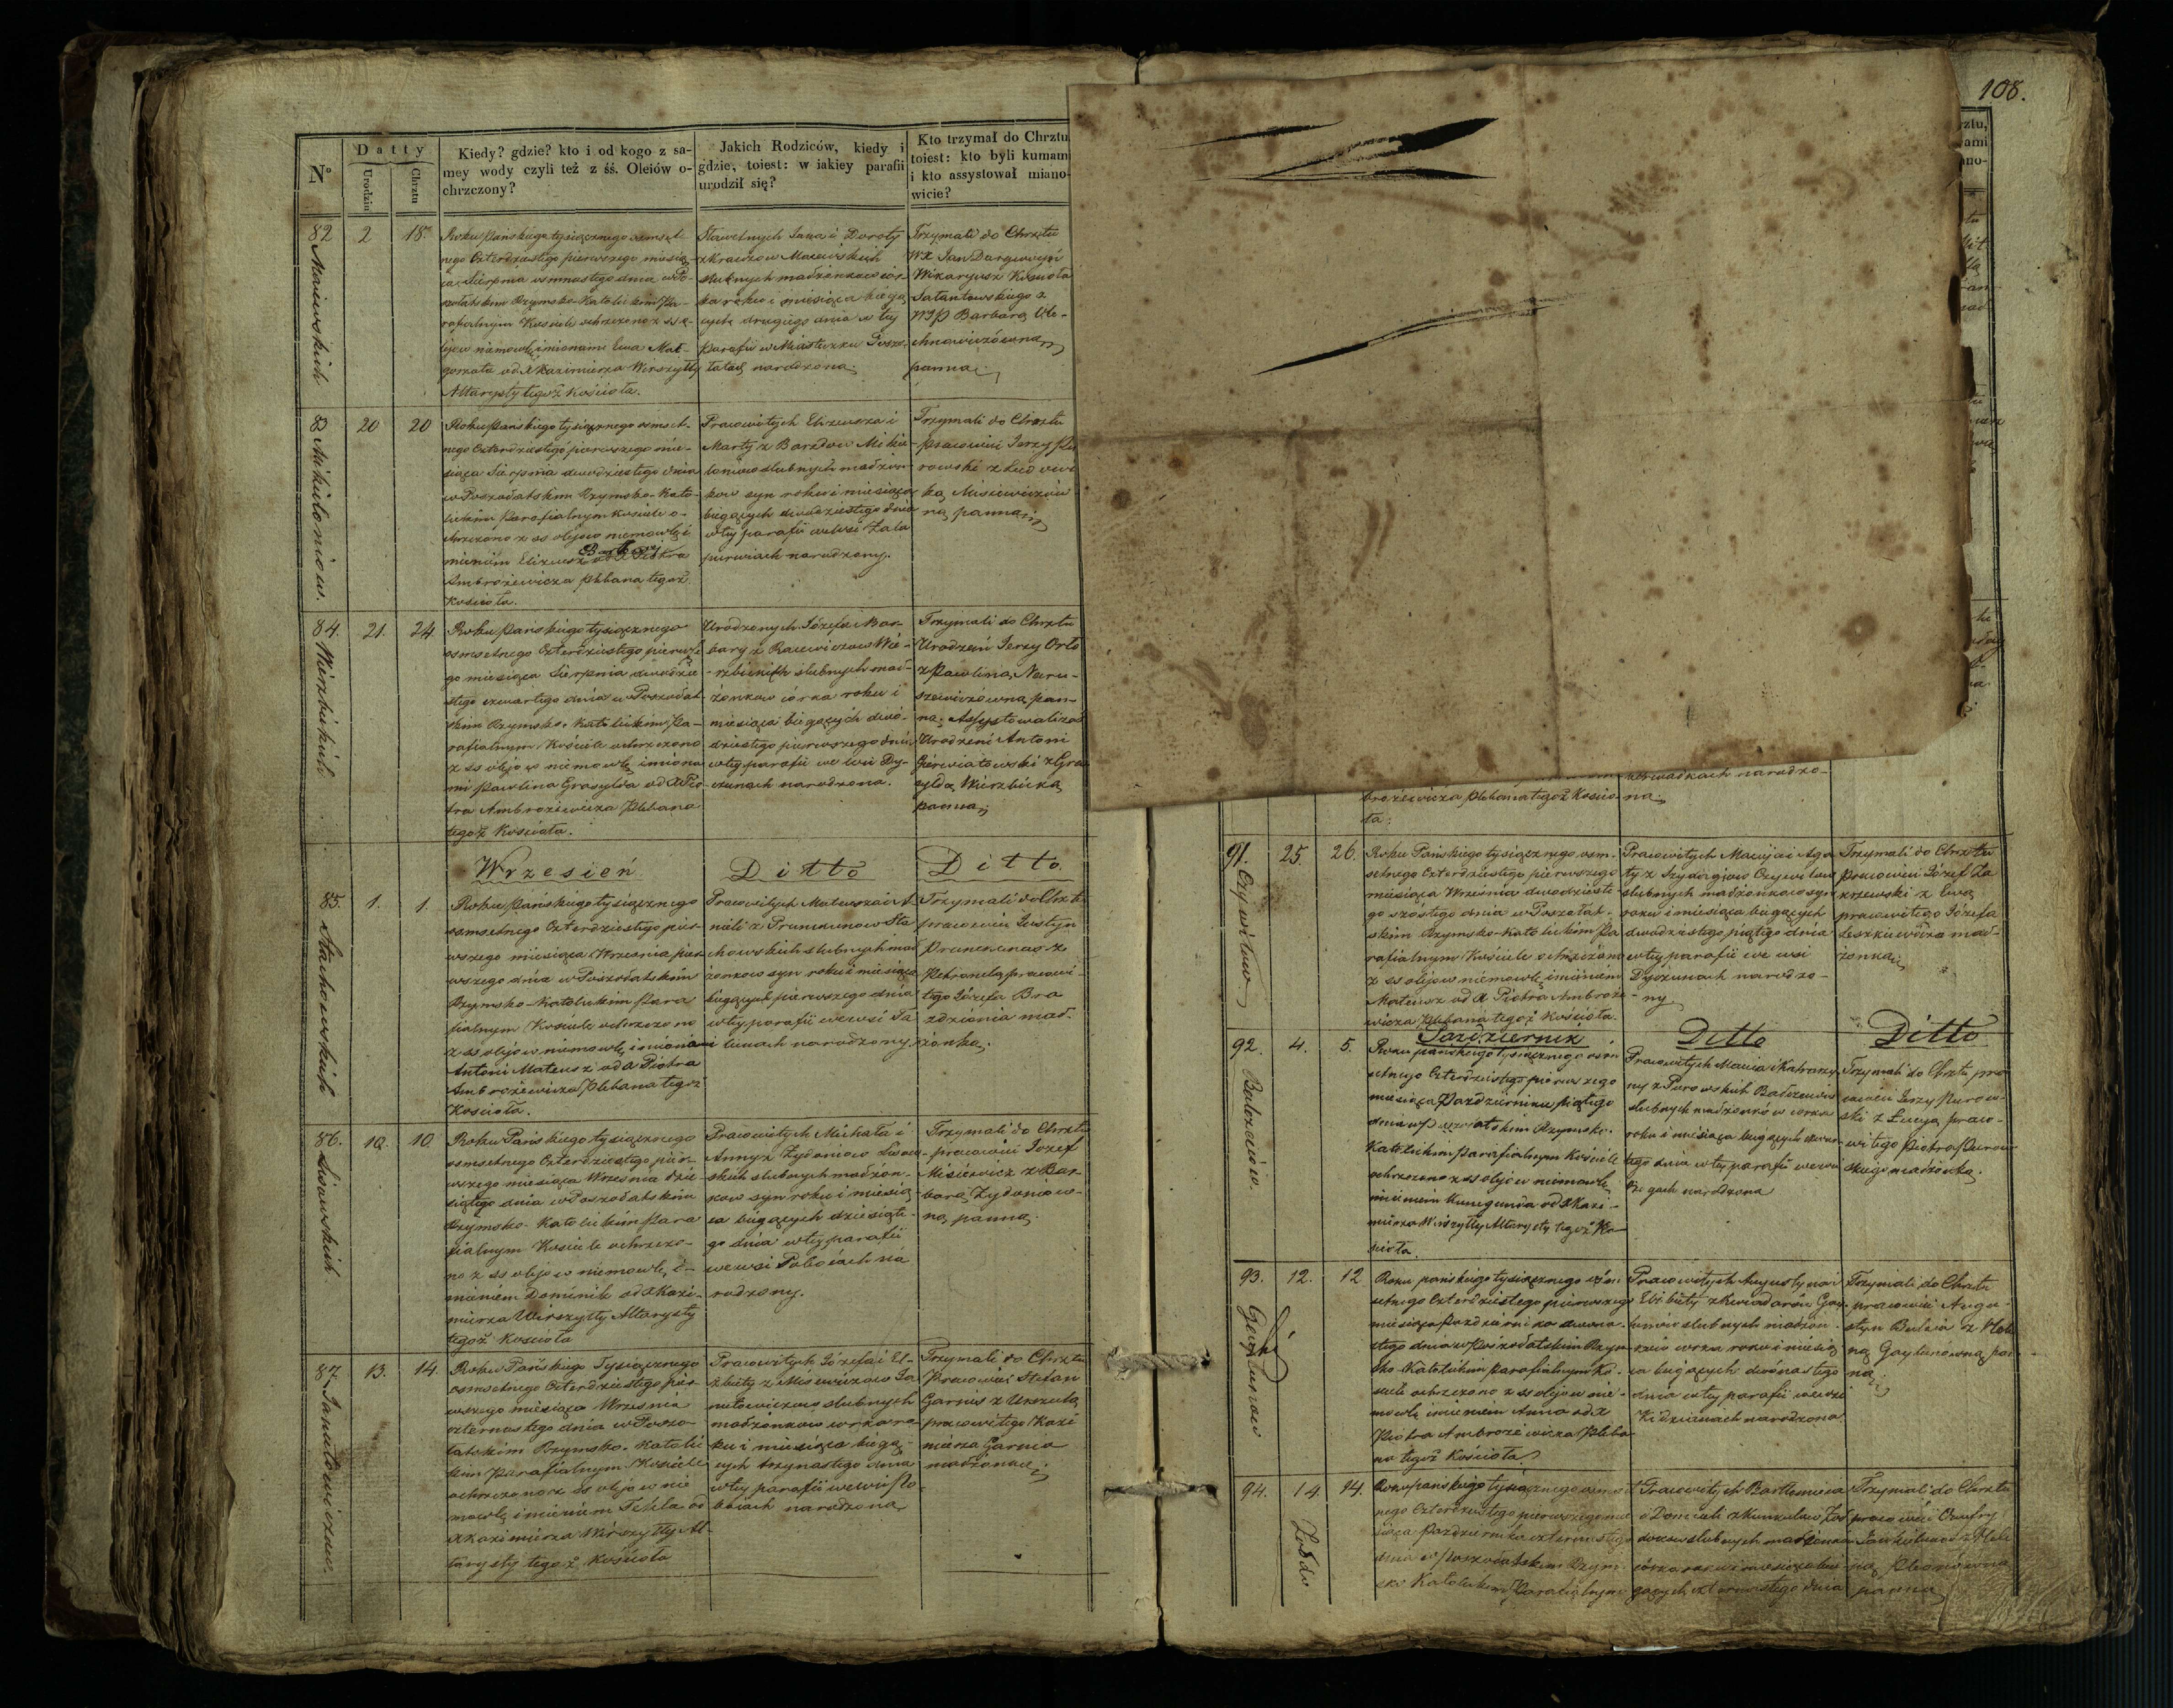 108.
N°
Datty
Urodzin
Chrztu
Kiedy? gdzie? kto i od kogo z sa-
mey wody czyli też z śś. Oleiów o-
chrzczony?
Jakich Rodziców, kiedy i
gdzie, toiest: w iakiey parafii
urodził się?
Kto trzymał do Chrztu
toiest: kto byli kumami
i kto assystował miano-
wicie?
82
Maiewskich
2
18.
Roku Pańskiego tysiącznego osmset-
nego Czterdziestego pierwszego miesią-
ca Sierpnia osmnastego dnia w Po-
szołatskim Rzymsko-Katolickim Pa-
rafialnym Kosciele ochrzczono z ss o-
lejow niemowlę imionami Ewa Mał-
gorzata od X Kazimierza Wirszyłły
Altarysty tegoż Kościoła.
Sławetnych Jana i Doroty
Maiewskich
slubnych małżonkow cór-
ka roku i miesiąca bieżą
cych drugiego dnia w tey
parafii w Miasteczku Poszo-
łatach narodzona.
Trzymali do Chrztu
WX Jan
Wikaryusz Kościoła
Sałantowskiego z
WJP Barbarą
panną.
83
Mikuloniow.
20
20
Roku Pańskiego tysiącznego osmset-
nego Czterdziestego pierwszego mie-
siąca Sierpnia dwudziestego dnia
w Poszołatskim Rzymsko-Kato-
lickim Parafialnym Kosciele o-
chrzczono z ss olejow niemowlę i
mieniem Elizeusz od X Piotra
Ambrożewicza Plebana tegoż
Kościoła.
Pracowitych Elizeusza i
Marty z
slubnych małżon-
kow syn roku i miesiąca
bieżących dwudziestego dnia
w tey parafii we wsi Zala
purwiach narodzony.
Trzymali do Chrztu
pracowici Jerzy
rowski z Ludowi
ką Misiewiczów
ną panną
84.
Wierzbickich
21.
24
Roku Pańskiego tysiącznego
osmsetnego Czterdziestego pierwsze
go miesiąca Sierpnia dwudzie
stego czwartego dnia w Poszołat-
skim Rzymsko-Katolickim Pa-
rafialnym Kościele ochrzczono
z ss olejow niemowlę imiona
mi Pawlina Grasylda od X Pio-
tra Ambrożewicza Plebana
tegoż Kościoła.
Urodzonych Józefa i Bar-
bary z Racewiczow Wie-
rzbickich slubnych mał-
żonkow córka roku i
miesiąca bieżących dwó-
dziestego pierwszego dnia
w tey parafii we wsi Dy-
rżunach narodzona.
Trzymali do Chrztu
Urodzeni Jerzy Orło
z Pawliną Naru-
szewiczówną pan-
ną. Assystowali zaś
Urodzeni Antoni
Gierwiatowski z Gra
zyldą Wierzbicką
panną
Wrzesień
Ditto
Ditto.
85.
Stachowskich
1.
1.
Roku Pańskiego tysiącznego
osmsetnego Czterdziestego pier-
wszego miesiąca Wrzesnia pier-
wszego dnia w Poszołatskim
Rzymsko-Katolickim Para
fialnym Kościele ochrzczono
z ss olejow niemowlę imionami
Antoni Mateusz od X Piotra
Ambrożewicza Plebana tegoż
Kościoła.
Pracowitych Mateusza i A
nieli z Sta
chowskich slubnych mał
żonkow syn roku i miesiąca
bieżących pierwszego dnia
w tey parafii we wsi
narodzony.
Trzymali do Chrztu
pracowici Justyn
z
Petronelą pracowi-
tego Józefa Bra
zdzionia mał-
żonką.
86.
Lisowskich
10.
10
Roku Pańskiego tysiącznego
osmsetnego Czterdziestego pier-
wszego miesiąca Wrzesnia dzie
siątego dnia w Poszołatskim
Rzymsko-Katolickim Para
fialnym Kosciele ochrzczo-
no z ss olejow niemowlę i-
mieniem Dominik od X Kazi-
mierza Wirszyłły Altarysty
tegoż Kościoła
Pracowitych Michała i
Anny z Żydoniow Lisow-
skich slubnych małżon-
kow syn roku i miesią
ca bieżących dziesiąte-
go dnia w tey parafii
we wsi Pobociach na
rodzony.
Trzymali do Chrztu
pracowici Józef
Misiewicz z Bar
barą Żydoniow-
ną panną.
87.
Janutowiczow
13.
14.
Roku Pańskiego Tysiącznego
osmsetnego Czterdziestego pier
wszego miesiąca Wrzesnia
czternastego dnia w Poszo-
łatskim Rzymsko-Katolic
kim Parafialnym Kościele
ochrzczono z ss olejow nie
mowlę imieniem Tekla od
X Kazimierza Wirszyłły Al-
tarysty tegoż Kościoła
Pracowitych Józefa i El-
żbiety z Misiewiczow Ja
nutowiczow slubnych
małżonkow córka ro-
ku i miesiąca bieżą-
cych trzynastego dnia
w tey parafii we wsi Po-
bociach narodzona.
Trzymali do Chrztu
Pracowici Stefan
Garnis z Urszulą
pracowitego Kazi
mierza Garnia
małżonką.
narodzo-
brożewicza Plebana tegoż Kościo-
ła.
na.
91.
25.
26.
Roku Pańskiego tysiącznego osm-
setnego Czterdziestego pierwszego
miesiąca Wrześnià dwudzieste-
go szóstego dnia w Poszołat-
skim Rzymsko-Katolickim Pa
rafialnym Kościele ochrzczono
z ss olejow niemowlę imieniem
Mateusz od X Piotra Ambroże-
wicza Plebana tegoż Kościoła.
Pracowitych Macieja i Aga
ty z
slubnych małżonkow syn
roku i miesiąca bieżących
dwudziestego piątego dnia
w tey parafii we wsi
Dyrżunach narodzo-
ny
Trzymali do Chrztu
pracowici Józef Za
krzewski z Ewą
pracowitego Józefa
Leszkiewicza mał-
żonką
Pazdziernik
Ditto
Ditto
92.
4.
5.
Roku pańskiego tysiącznego osm
setnego Czterdziestego pierwszego
miesiąca Pazdziernika piątego
dnia w Poszołatskim Rzymsko-
Katolickim Parafialnym Kościele
ochrzczono z ss olejow niemowlę
imieniem Kunegunda od X Kazi-
mierza Wirszyłły Altarysty tegoż Ko
scioła.
Pracowitych Macia i Katarzy
ny z Purowskich
slubnych małżonków córka
roku i miesiąca bieżących czwar-
tego dnia w tey parafii we wsi
narodzona
Trzymali do Chrztu pra
cowici Jerzy Purow-
ski z Łucyą praco-
witego Piotra Purow
skiego małżonką.
93.
Gaytunow
12.
12
Roku pańskiego tysiącznego osm
setnego Czterdziestego pierwszego
miesiąca Pazdziernika dwuna-
stego dnia w Poszołatskim Rzym
sko-Katolickim parafialnym Ko-
sciele ochrzczono z ss olejow nie-
mowlę imieniem Anna od X
Piotra Ambrożewicza Pleba
na tegoż Kościoła
Pracowitych Augustyna i
Elżbiety z Gay-
tunow slubnych małżon-
ków córka roku i miesią
ca bieżących dwónastego
dnia w tey parafii we wsi
Kidzianach narodzona
Trzymali do Chrztu
pracowici Augu-
styn z Hele
ną Gaytunowną pan-
ną
94.
14.
14.
Roku pańskiego tysiącznego osmset
nego Czterdziestego pierwszego mie
siąca Pazdziernika czternastego
dnia w Poszołatskim Rzym-
sko Katolickim Parafialnym
Pracowitych Bartłomieja
i Domiceli z
slubnych małżonkow
córka roku i miesiąca bie
żących czternastego dnia
Trzymali do Chrztu
pracowici Onufry
z Hele
ną
panną